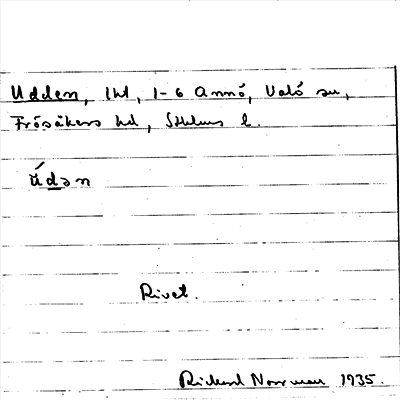 Udden, lht, 1-6 Annö, Valö sn,
Frösåkers hd, Sthlms l.
ú̶dən
Rivet.
Richard Norrman 1935.